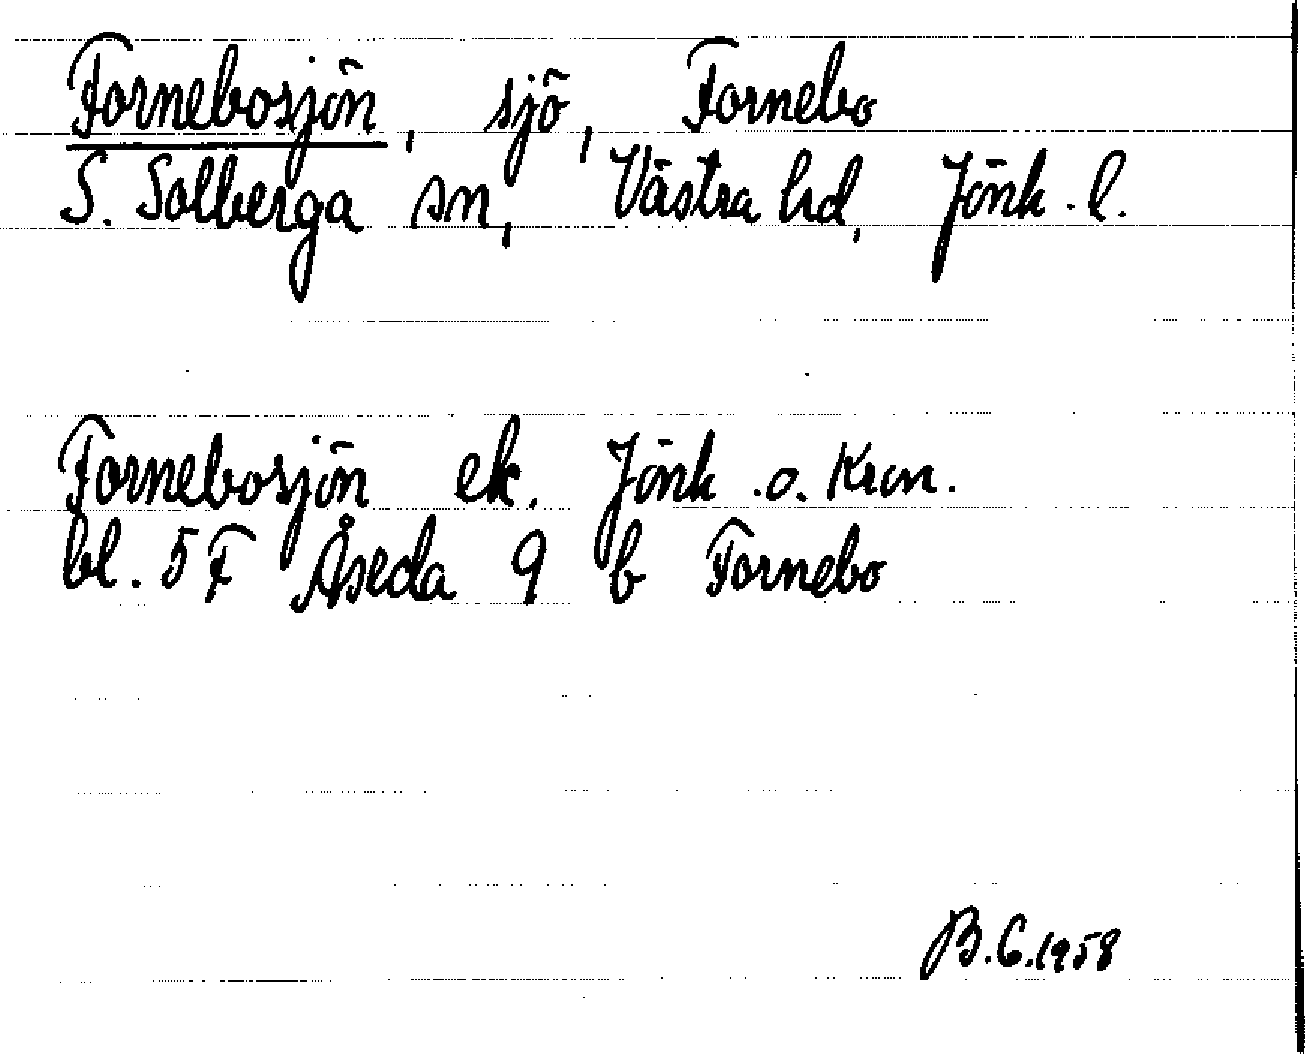 Fornebosjön, sjö, Fornebo
S. Solberga sn, Västra hd, Jönk. l.
Fornebosjön ek. Jönk. o. Kron.
bl. 5 F Åseda 9 b Fornebo
B.G. 1958